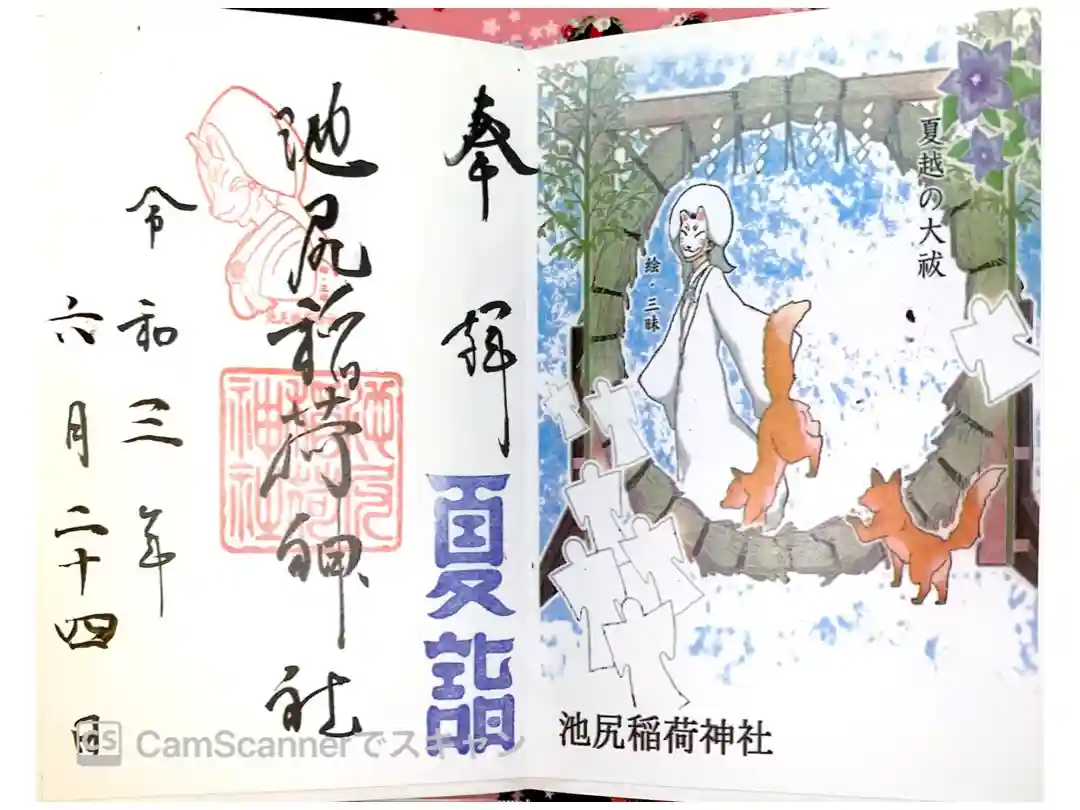 夏越の大祓
絵・三昧
池尻稲荷神社
奉拝
夏詣
池尻稲荷神社
池尻稲荷神社
令和三年
六月二十四日
CS CamScannerでスキャン